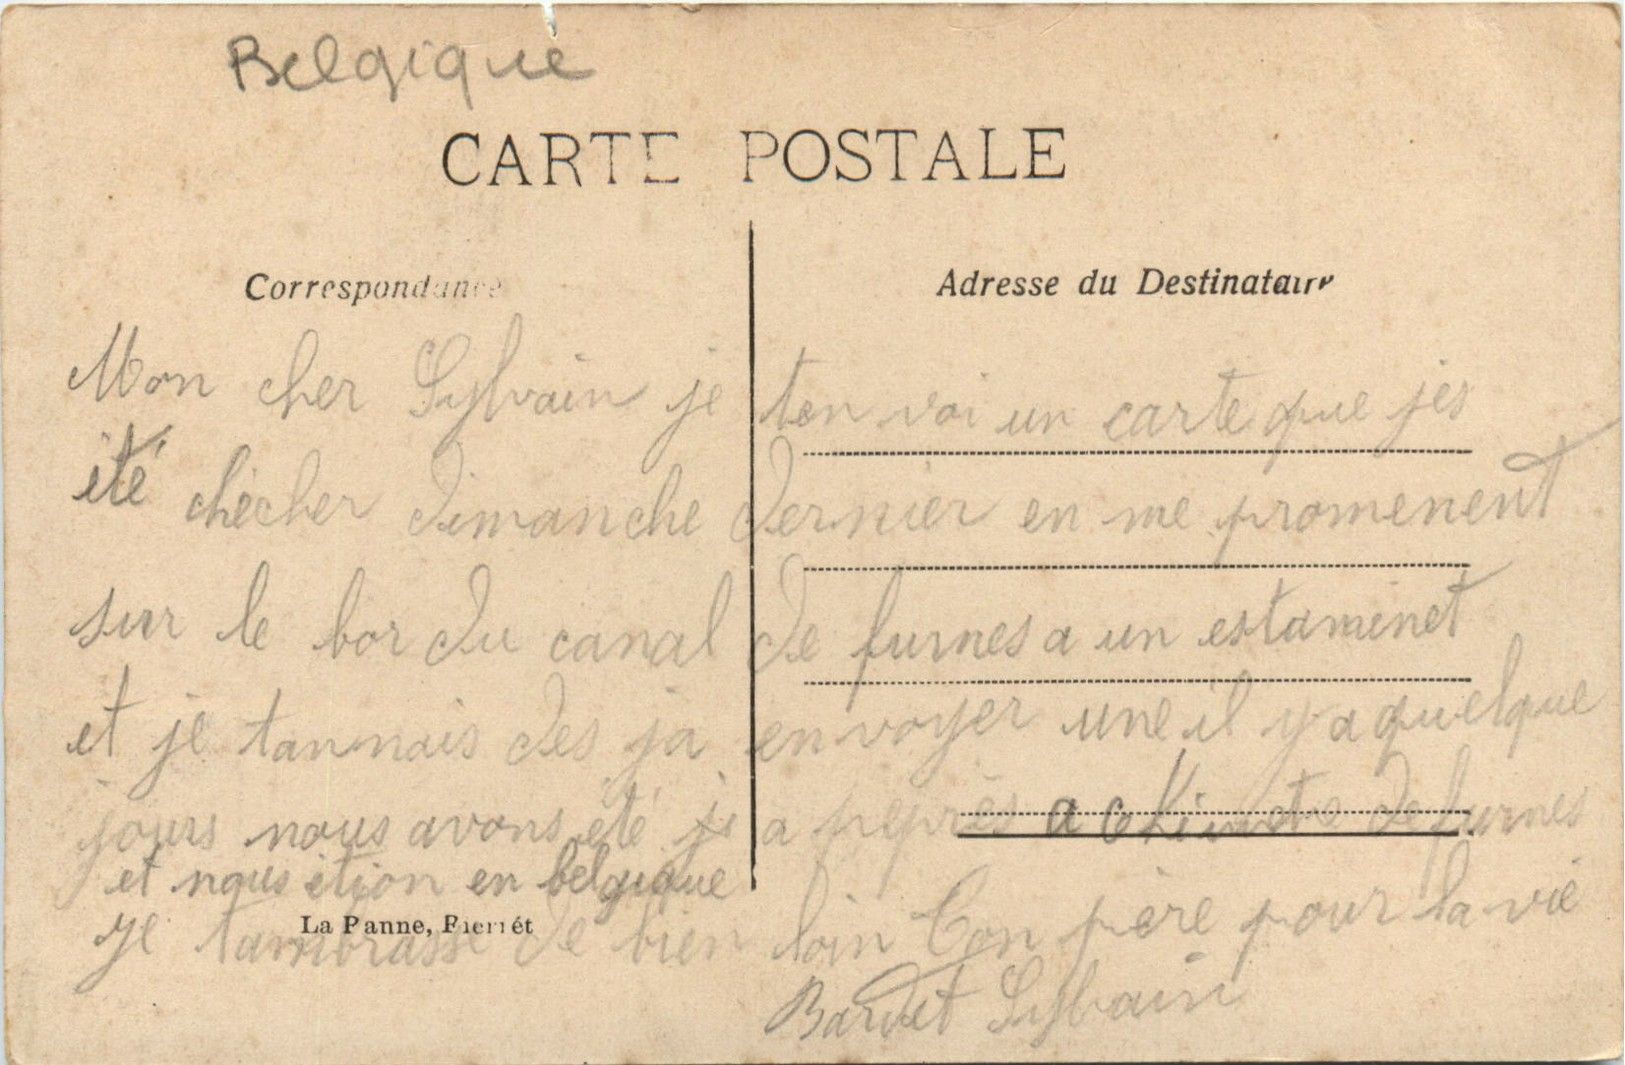 Belgique
CARTE POSTALE
Correspondance
Adresse du Destinataire
Mon cher Sylvain je ten voi un carte que jes
été checher dimanche dernier en me promenent
sur le bor du canal de furnes a un estaminet
et je tannais des ja envoyer une il y a quelque
jours nous avons été a peprès a 6 de furnes
et nous étion en belgique
je tambrasse de bien loin Ton père pour la vie
La Panne, Pierrét
Bardet Sylvain